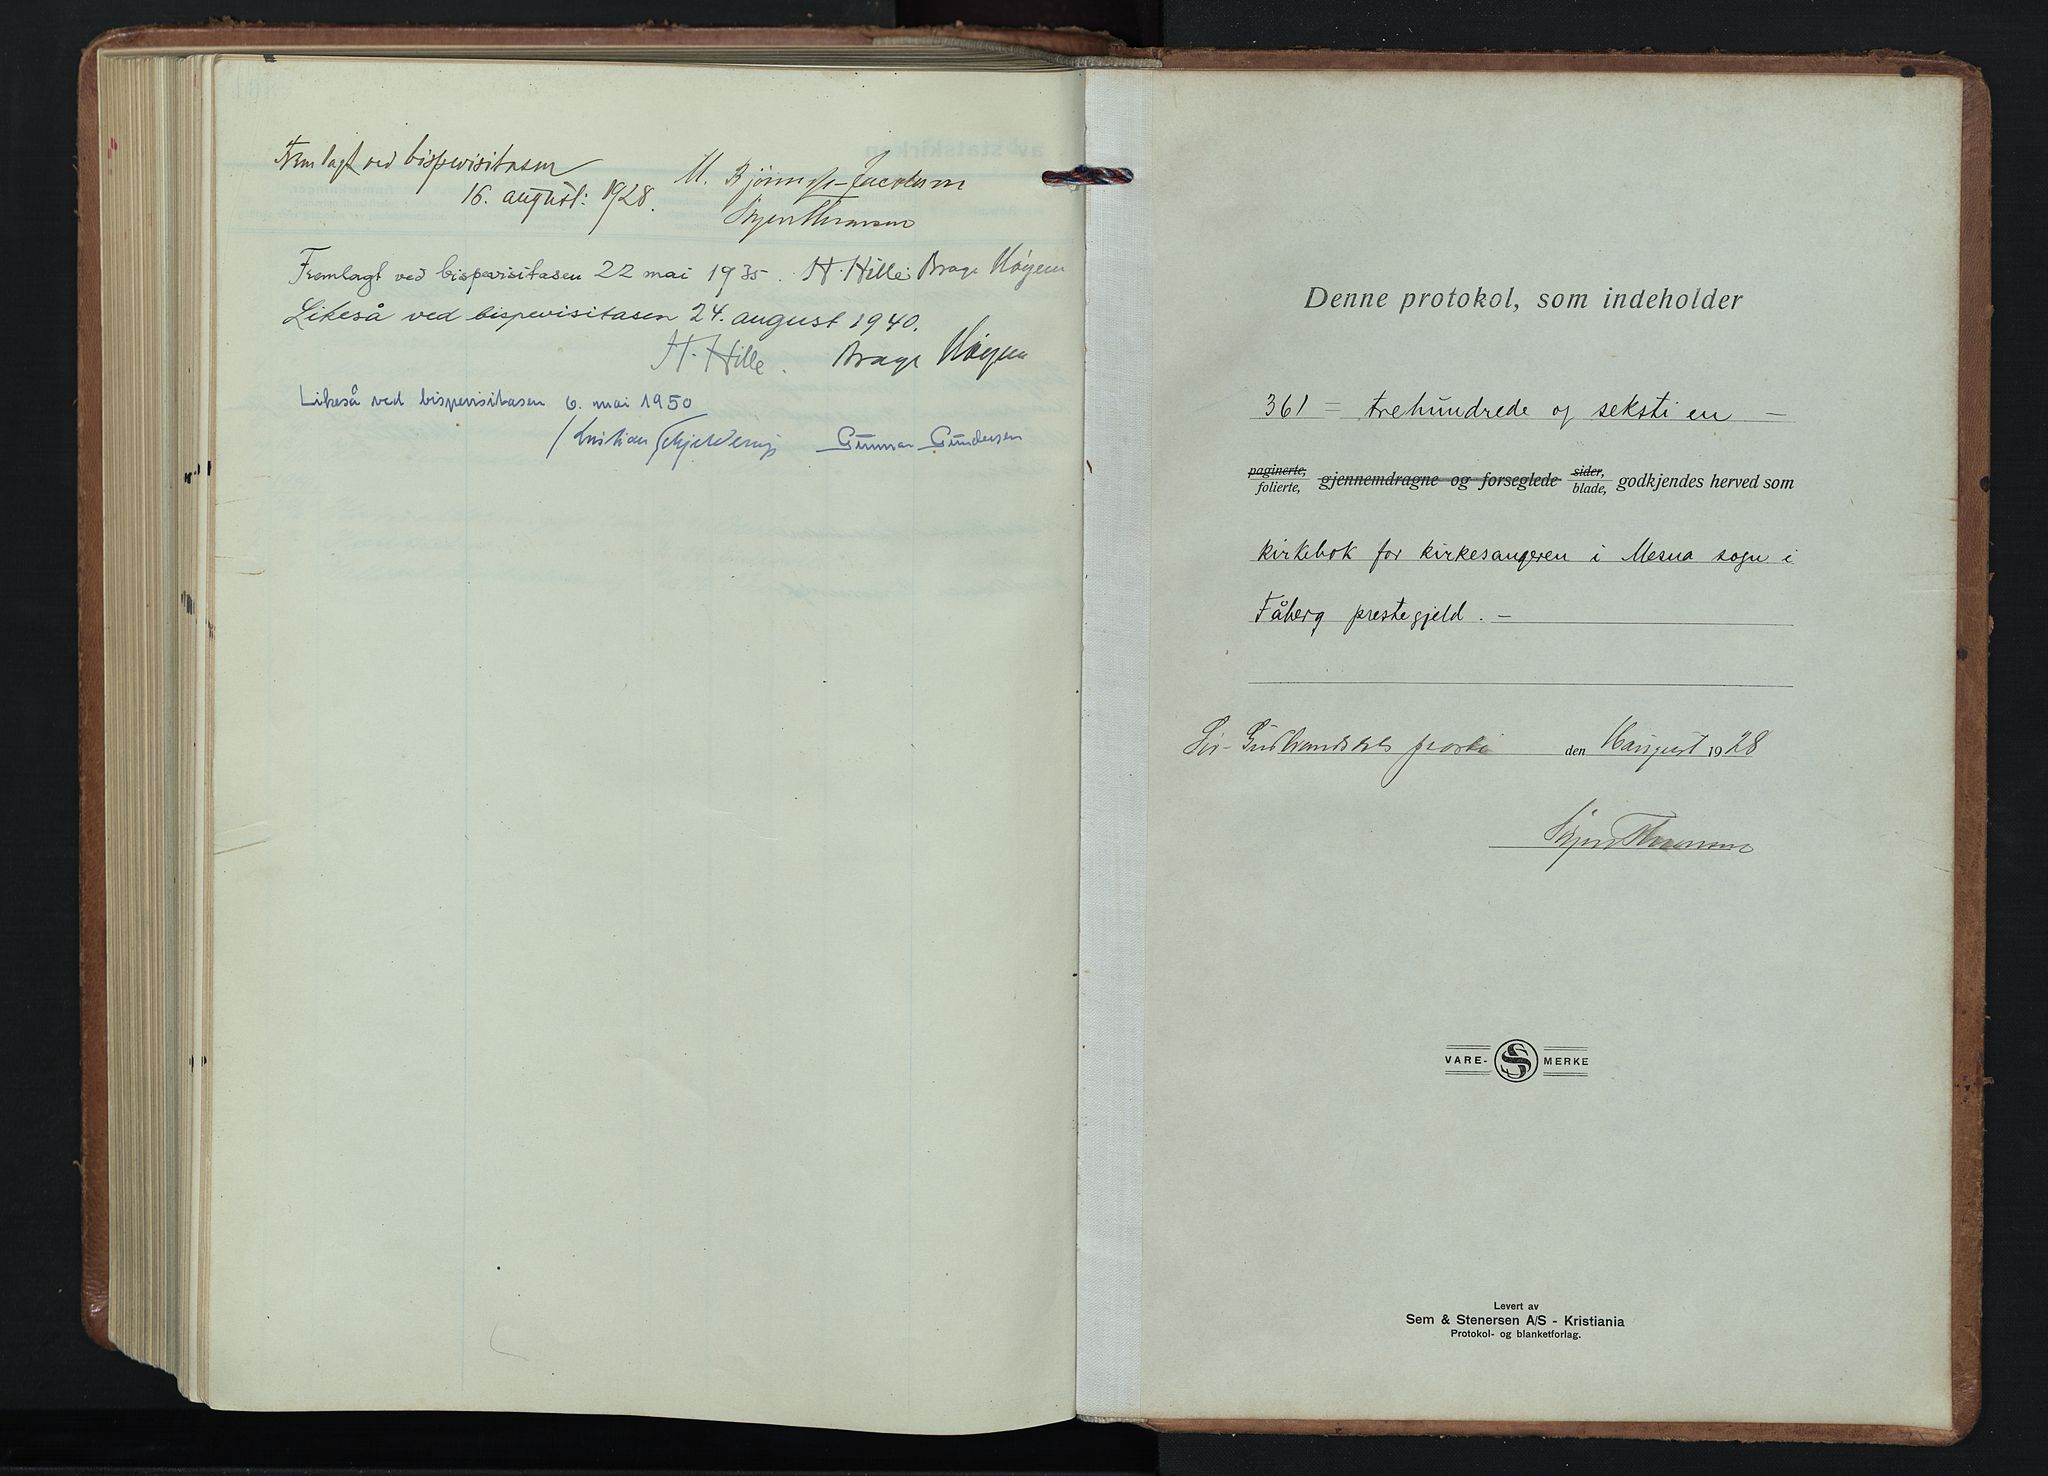 Fremlagt ved bispevisitasen
16. august: 1928.
M. Bjønnes-Jacobsen
Fremlagt ved bispevisitasen 22 mai 1935. H. Hille. Brage Høyem
Likeså ved bispevisitasen 24. august 1940.
H. Hille. Brage Høyem
Likeså ved bispevisitasen 6. mai 1950
Kristian Schjelderup Gunnar Gundersen
Denne protokol, som indeholder
361 = trehundrede og seksti en —
paginerte, folierte, gjennemdragne og forseglede sider, blade, godkjendes herved som
kirkebok for kirkesangeren i Mesna sogn i
Fåberg prestegjeld. —
Sør-Gudbrandsdals prosti den 16 august 1928
VARE- S MERKE
Levert av
Sem & Stenersen A/S - Kristiania
Protokol- og blanketforlag.